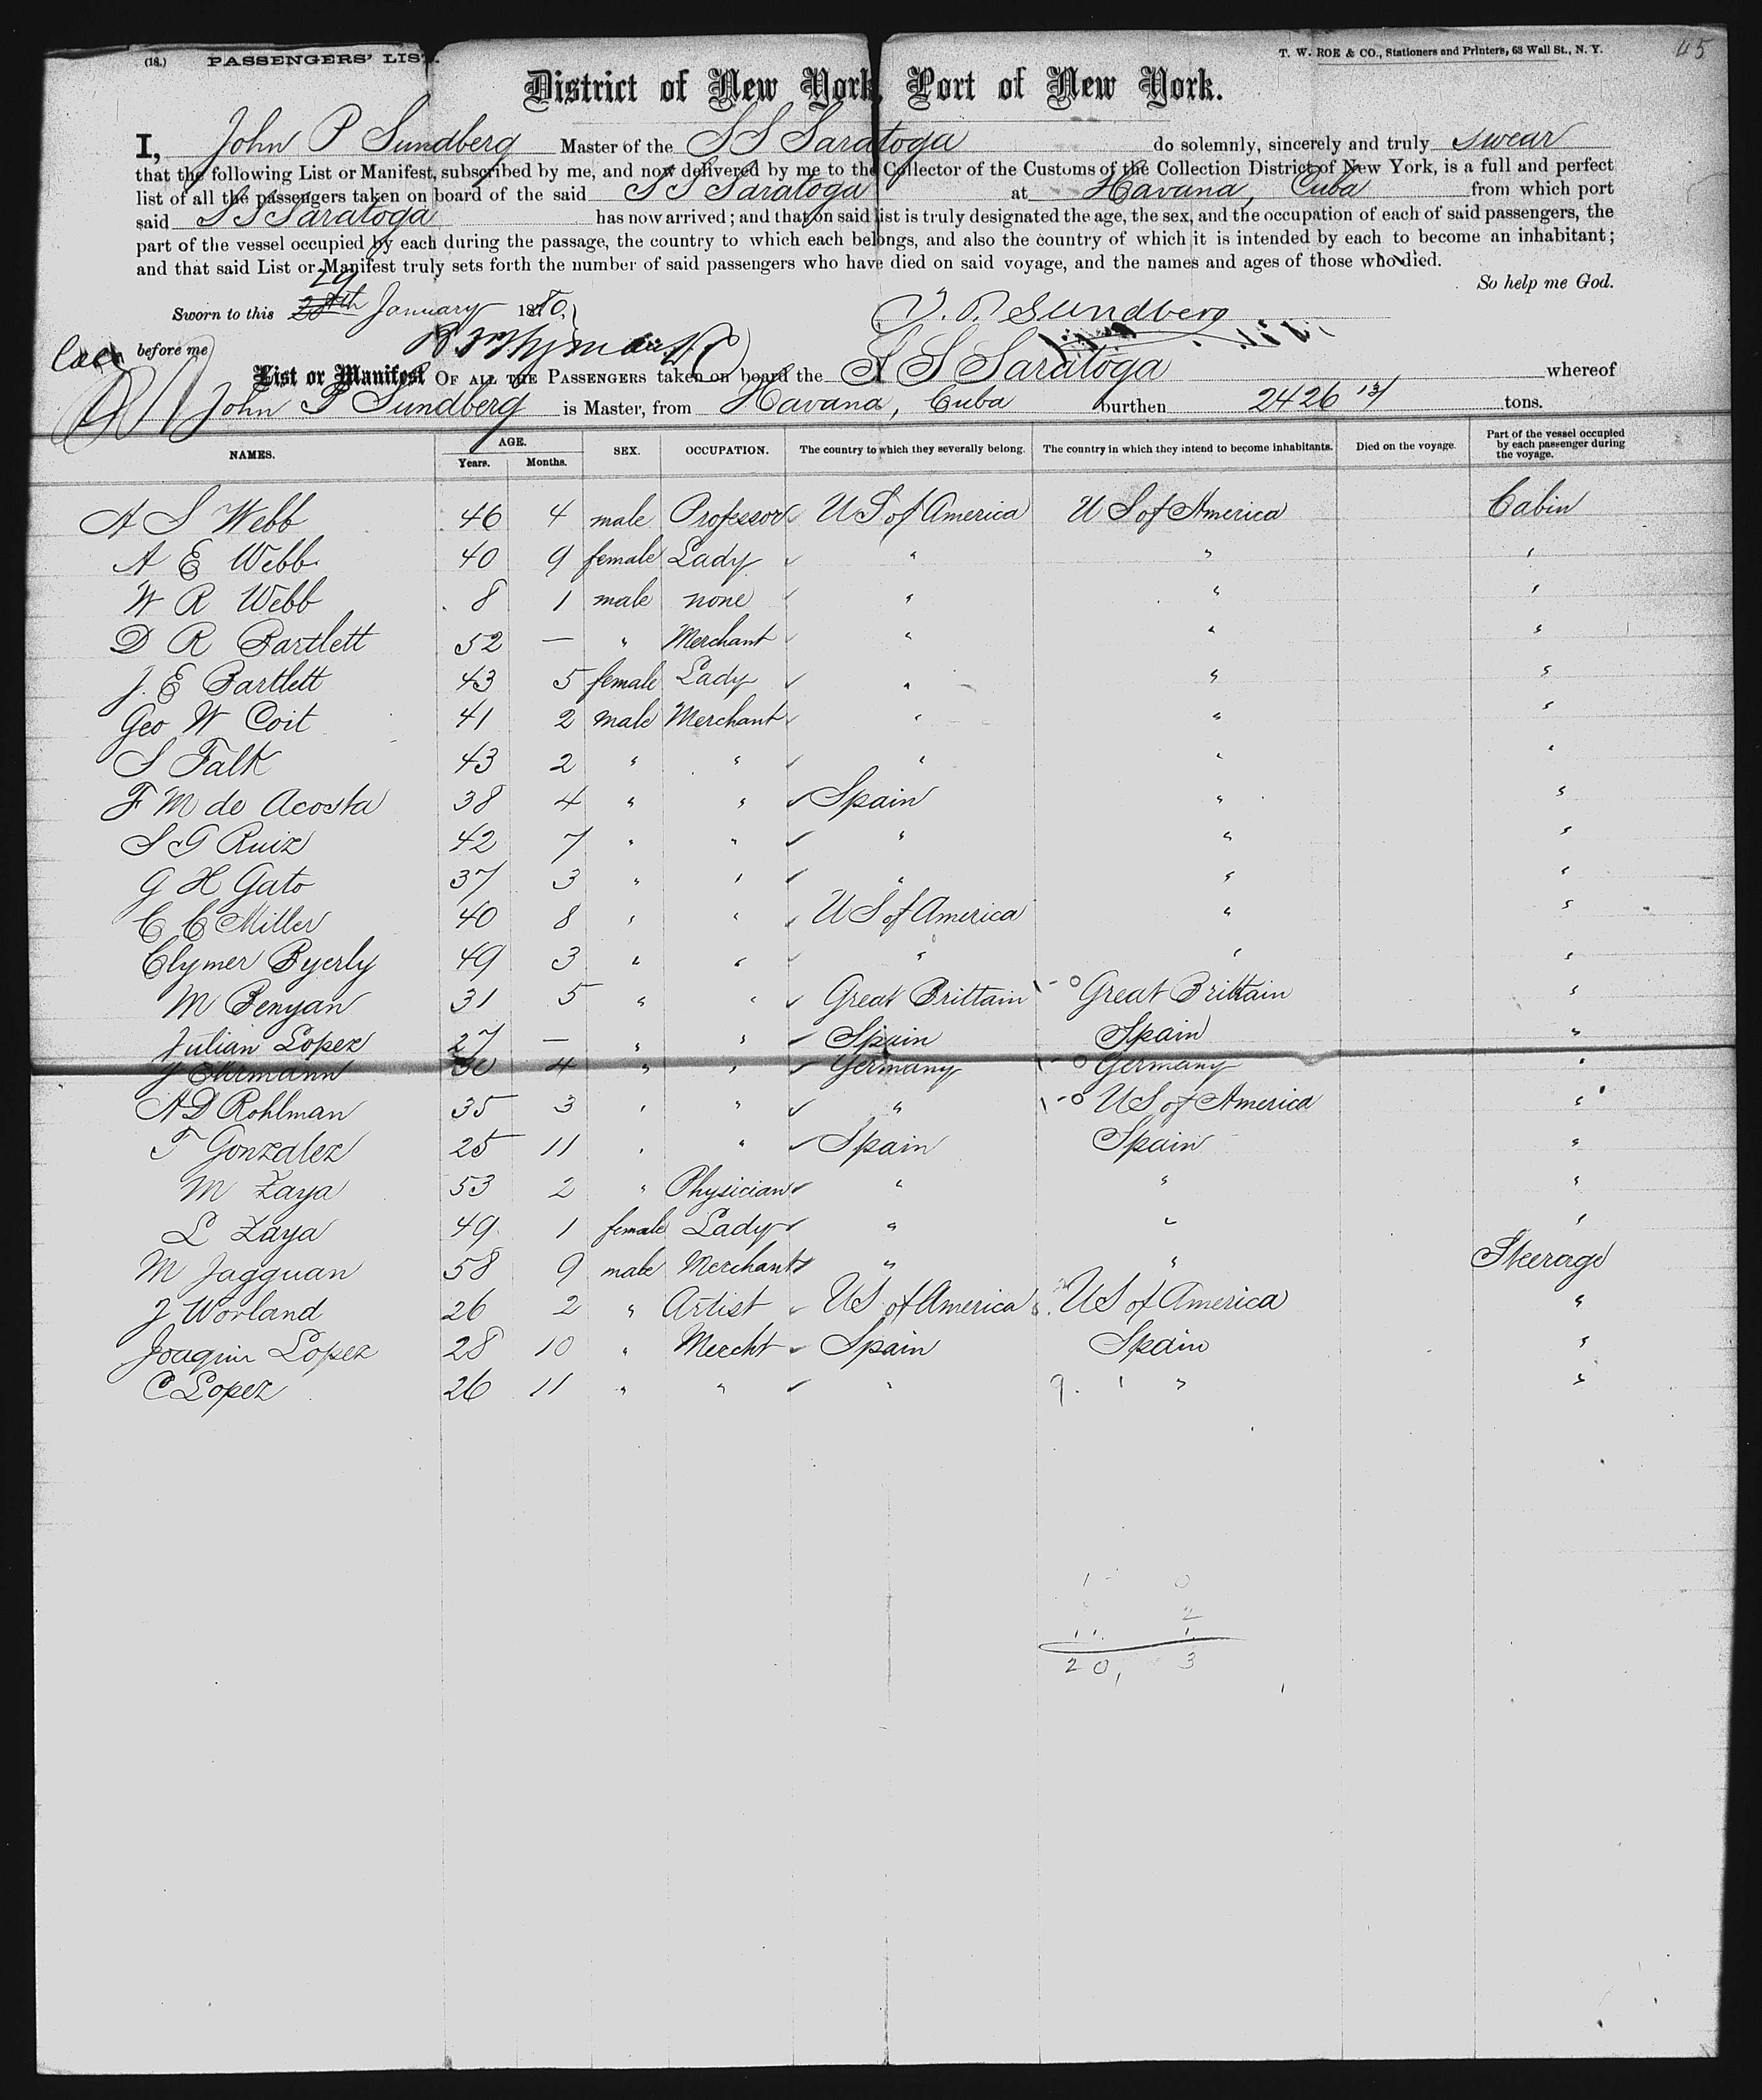 (18.) PASSENGERS' LIST. T. W. ROE & CO., Stationers and Printers, 63 Wall St., N. Y. 45
District of New York, Port of New York.
I, John P Sundberg Master of the S S Saratoga do solemnly, sincerely and truly swear
that the following List or Manifest, subscribed by me, and now delivered by me to the Collector of the Customs of the Collection District of New York, is a full and perfect
list of all the passengers taken on board of the said S S Saratoga at Havana, Cuba from which port
said S S Saratoga has now arrived; and that on said list is truly designated the age, the sex, and the occupation of each of said passengers, the
part of the vessel occupied by each during the passage, the country to which each belongs, and also the country of which it is intended by each to become an inhabitant;
and that said List or Manifest truly sets forth the number of said passengers who have died on said voyage, and the names and ages of those who died.
So help me God.
29
Sworn to this 28th January 1880. J. P. Sundberg
before me
List or Manifest OF ALL THE PASSENGERS taken on board the S S Saratoga whereof
John P Sundberg is Master, from Havana, Cuba burthen 2426 tons.
NAMES. AGE. Years. Months. SEX. OCCUPATION. The country to which they severally belong. The country in which they intend to become inhabitants. Died on the voyage. Part of the vessel occupied by each passenger during the voyage.
A S Webb 46 4 male Professor U S of America U S of America Cabin
A E Webb 40 9 female Lady " " "
W R Webb 8 1 male none " " "
D R Bartlett 52 — " Merchant " " "
J. E Bartlett 43 5 female Lady " " "
Geo W Coit 41 2 male Merchant " " "
S Falk 43 2 " " " " "
F M de Acosta 38 4 " " Spain " "
S G Ruiz 42 7 " " " " "
G H Gato 37 3 " " " " "
C C Miller 40 8 " " U S of America " "
Clymer Byerly 49 3 " " " " "
M Benyan 31 5 " " Great Brittain Great Brittain "
Julian Lopez 27 — " " Spain Spain "
J Ehrmann 30 4 " " Germany Germany "
A D Rohlman 35 3 " " " U S of America "
F Gonzalez 25 11 " " Spain Spain "
M Zaya 53 2 " Physician " " "
L Zaya 49 1 female Lady " " "
M Jagguan 58 9 male Merchant " " Steerage
J Worland 26 2 " Artist U S of America U S of America "
Joaquin Lopez 28 10 " Mercht Spain Spain "
C Lopez 26 11 " " " 9. " "
1 0
2
11. 1
20, 3